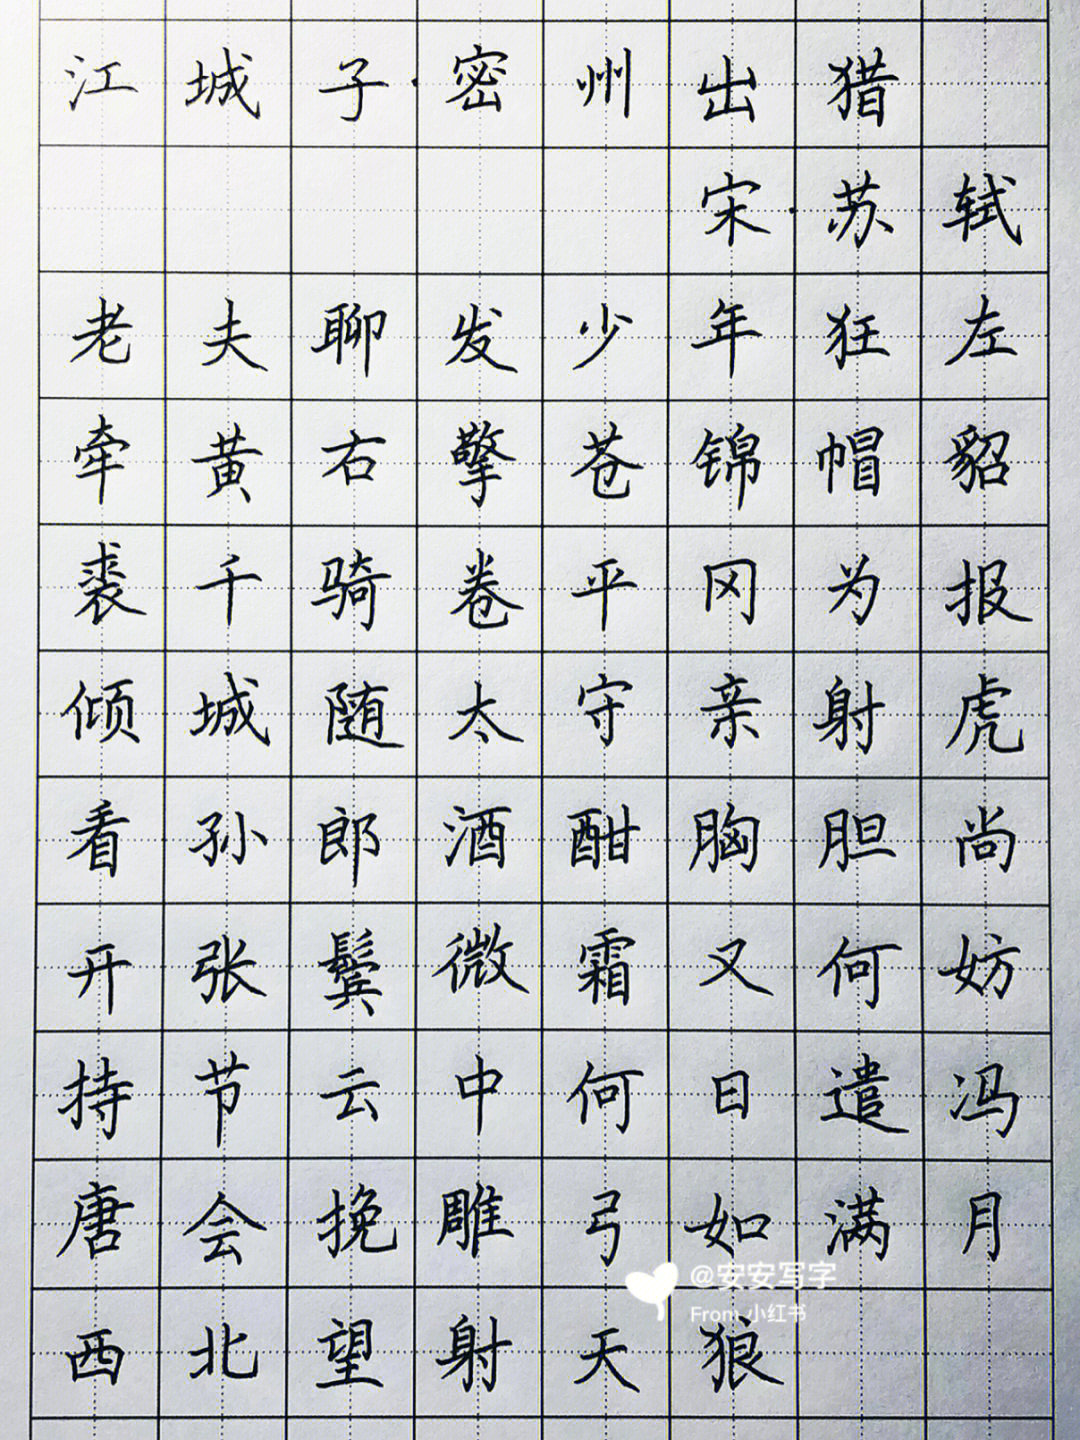 江城子·密州出猎
宋·苏轼
老夫聊发少年狂左
牵黄右擎苍锦帽貂
裘千骑卷平冈为报
倾城随太守亲射虎
看孙郎酒酣胸胆尚
开张鬓微霜又何妨
持节云中何日遣冯
唐会挽雕弓如满月
@安安写字
From 小红书
西北望射天狼